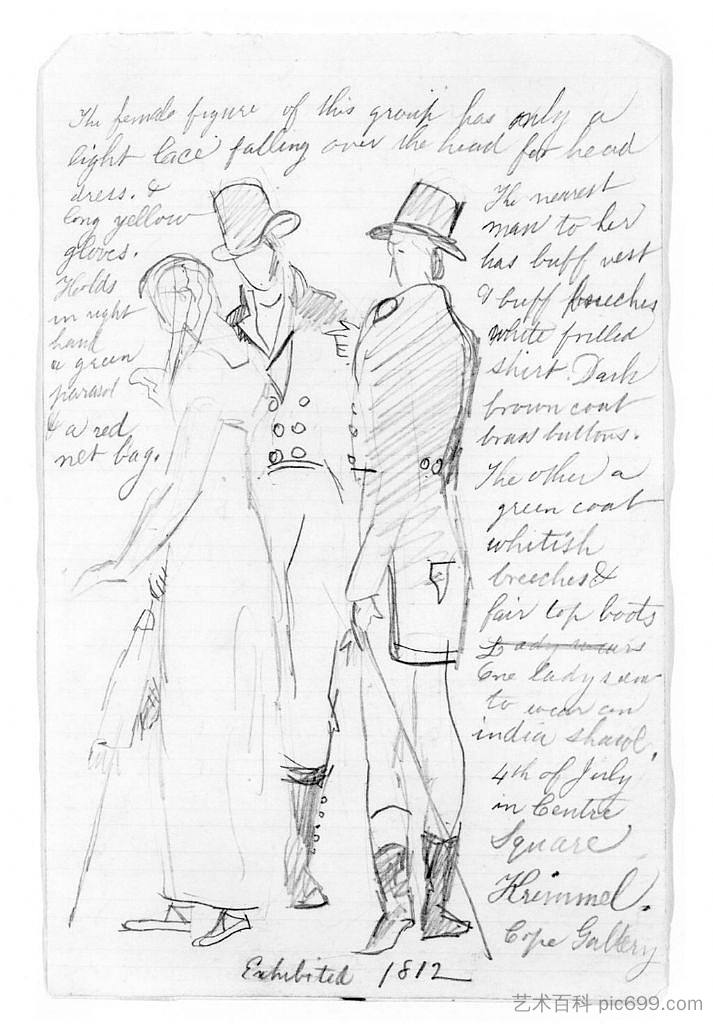 The female figure of this group has only a
light lace falling over the head for head
dress. &
long yellow
gloves.
Holds
in right
hand
a green
parasol
& a red
net bag.
The nearest
man to her
has buff vest
& buff breeches
white frilled
shirt. Dark
brown coat
brass buttons.
The other a
green coat
whitish
breeches &
fair top boots
Lady wears
One lady seem
to wear an
india shawl.
4th of July
in Centre
Square
Krimmel.
Cope Gallery
Exhibited 1812
艺术百科 pic699.com